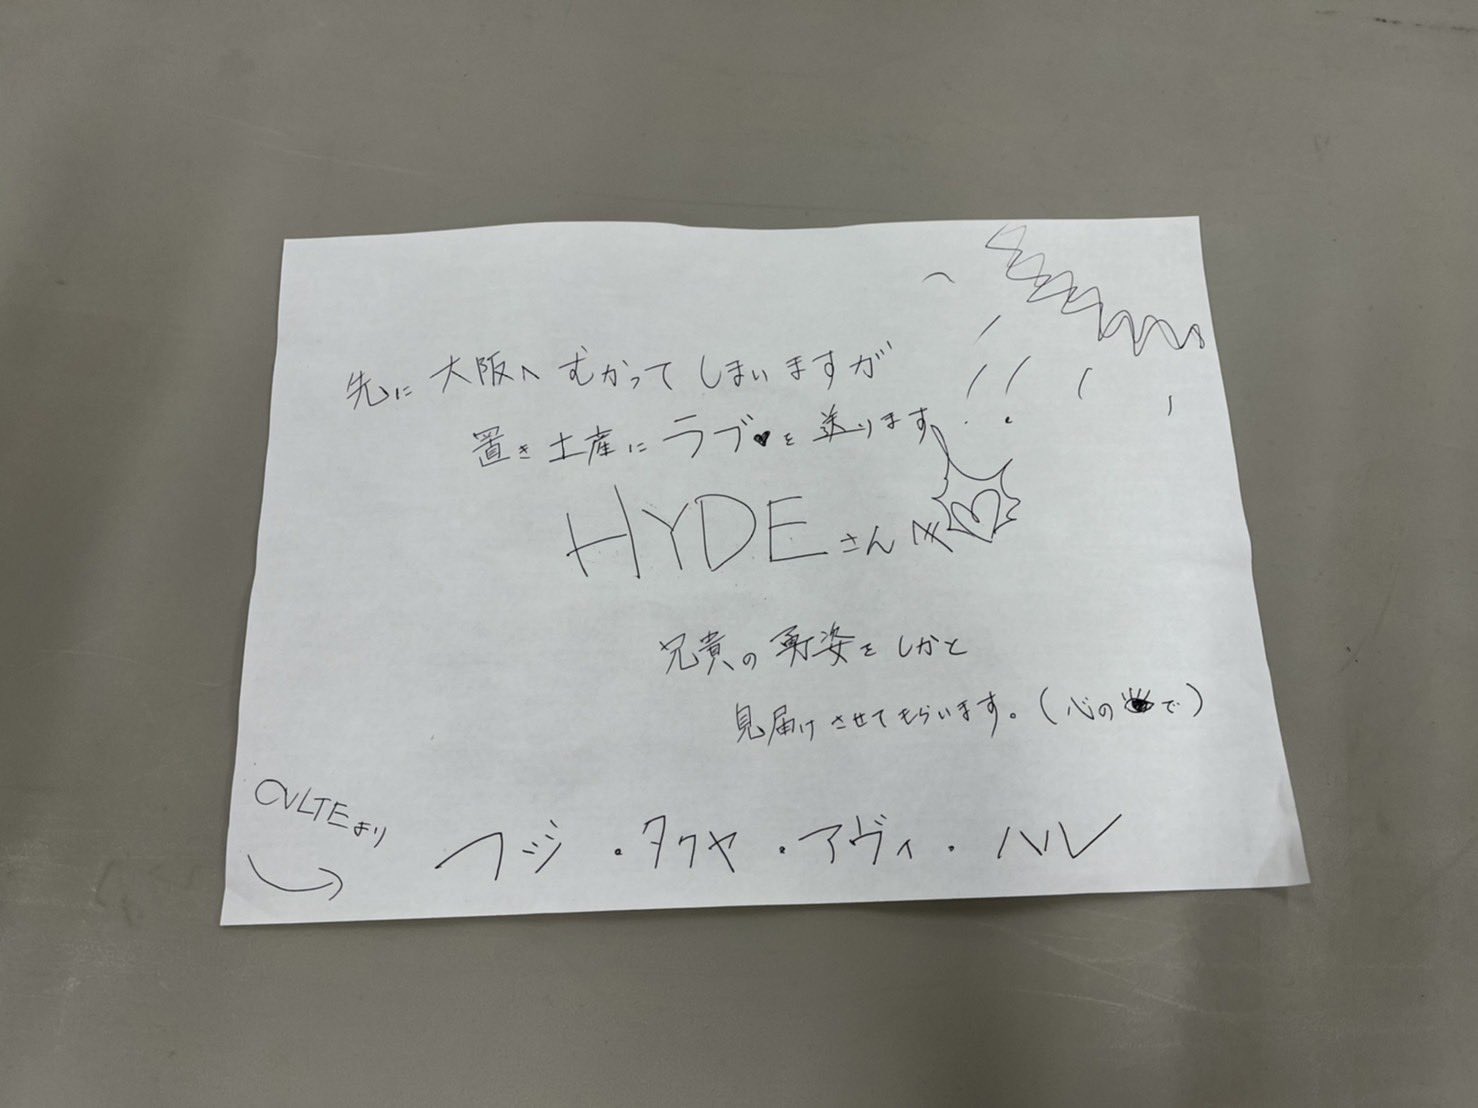 先に大阪へむかってしまいますが
置き土産にラブ♥を送ります
HYDEさん
兄貴の勇姿をしかと
見届けさせてもらいます。(心の👁で)
CVLTEより
フジ・タクヤ・アヴィ・ハル